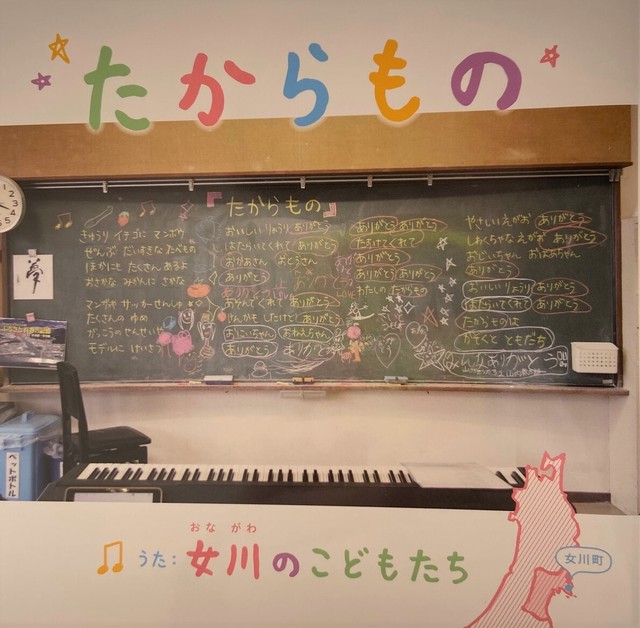 たからもの
『たからもの』
きゅうり イチゴに マンボウ
ぜんぶ だいすきな たべもの
ほかにも たくさん あるよ
おさかな みかんに さかな
マンガか サッカーせんしゅ
たくさんの ゆめ
がっこうの せんせいや
モデルに けいさつ
おいしいりょうり ありがとう
はたらいてくれて ありがとう
おかあさん おとうさん
ありがとう
あそんでくれて ありがとう
けんかも したけど ありがとう
おにいちゃん おねえちゃん
ありがとう
ありがとう ありがとう
たすけてくれて
ありがとう
ありがとう ありがとう
わたしの たからもの
やさしいえがお ありがとう
しわくちゃなえがお ありがとう
おじいちゃん おばあちゃん
ありがとう
おいしいりょうり ありがとう
はたらいてくれて ありがとう
たからものは
かぞくと ともだち
みんなありがとう
夢
ペットボトル
うた:女川のこどもたち
おながわ
女川町